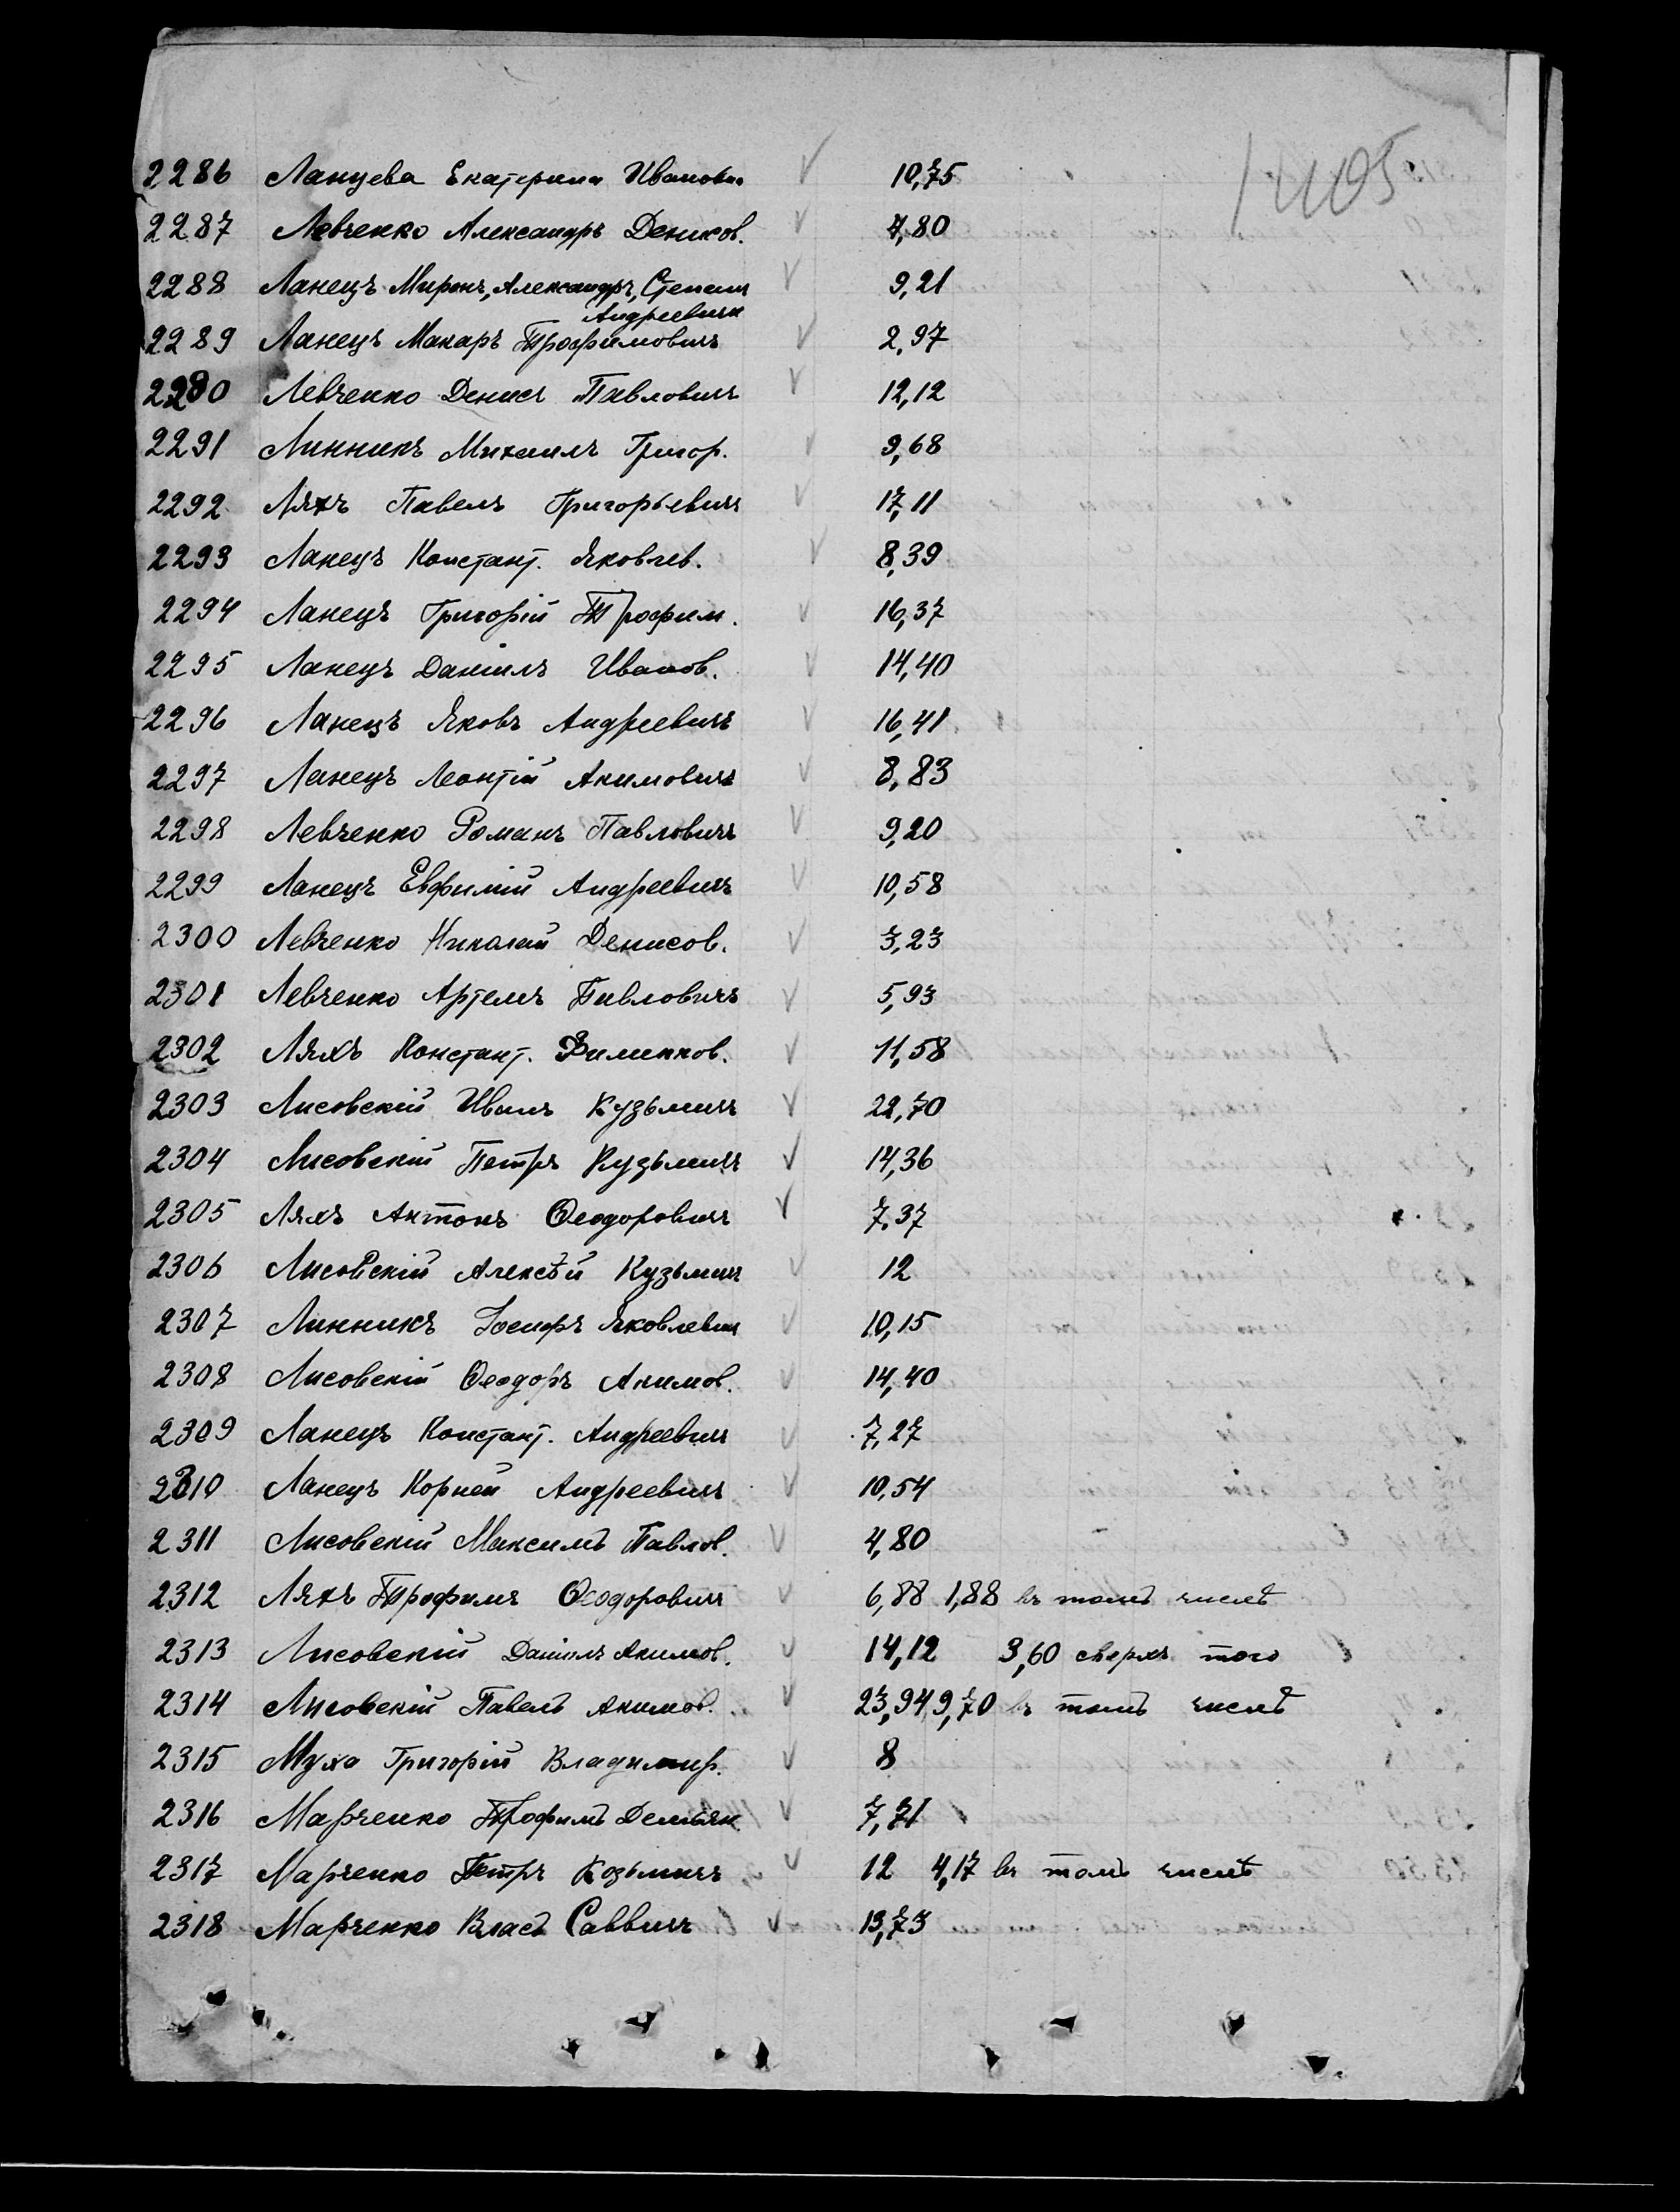 2286 Ланцева Екатерина Ивановна √ 10,75
2287 Левченко Александръ Денисов. √ 4,80
2288 Ланецъ Миронъ, Александръ, Степанъ √ 9,21
Андреевичи
2289 Ланецъ Макаръ Трофимовичъ √ 2,97
2290 Левченко Денисъ Павловичъ √ 12,12
2291 Линникъ Михаилъ Григор. √ 9,68
2292 Ляхъ Павелъ Григорьевичъ √ 17,11
2293 Ланецъ Констант. Яковлев. √ 8,39
2294 Ланецъ Григорій Трофим. √ 16,37
2295 Ланецъ Даніилъ Иванов. √ 14,40
2296 Ланецъ Яковъ Андреевичъ √ 16,41
2297 Ланецъ Леонтій Акимовичъ √ 8,83
2298 Левченко Романъ Павловичъ √ 9,20
2299 Ланецъ Евфимій Андреевичъ √ 10,58
2300 Левченко Николай Денисов. √ 3,23
2301 Левченко Артемъ Павловичъ √ 5,93
2302 Ляхъ Констант. Филиппов. √ 11,58
2303 Лисовскій Иванъ Кузьмичъ √ 22,70
2304 Лисовскій Петръ Кузьмичъ √ 14,36
2305 Ляхъ Антонъ Ѳеодоровичъ √ 7,37
2306 Лисовскій Алексѣй Кузьмичъ √ 12
2307 Линникъ Іосифъ Яковлевичъ √ 10,15
2308 Лисовскій Ѳеодоръ Акимов. √ 14,40
2309 Ланецъ Констант. Андреевичъ √ 7,27
2310 Ланецъ Корней Андреевичъ √ 10,54
2311 Лисовскій Максимъ Павлов. √ 4,80
2312 Ляхъ Трофимъ Ѳеодоровичъ √ 6,88 1,88 въ томъ числѣ
2313 Лисовскій Даніилъ Акимов. √ 14,12 3,60 сверхъ того
2314 Лисовскій Павелъ Акимов. √ 23,94 9,70 въ томъ числѣ
2315 Муха Григорій Владимир. √ 8
2316 Марченко Трофимъ Демьян. √ 7,71
2317 Марченко Петръ Козьмичъ √ 12 4,17 въ томъ числѣ
2318 Марченко Власъ Саввичъ √ 13,73